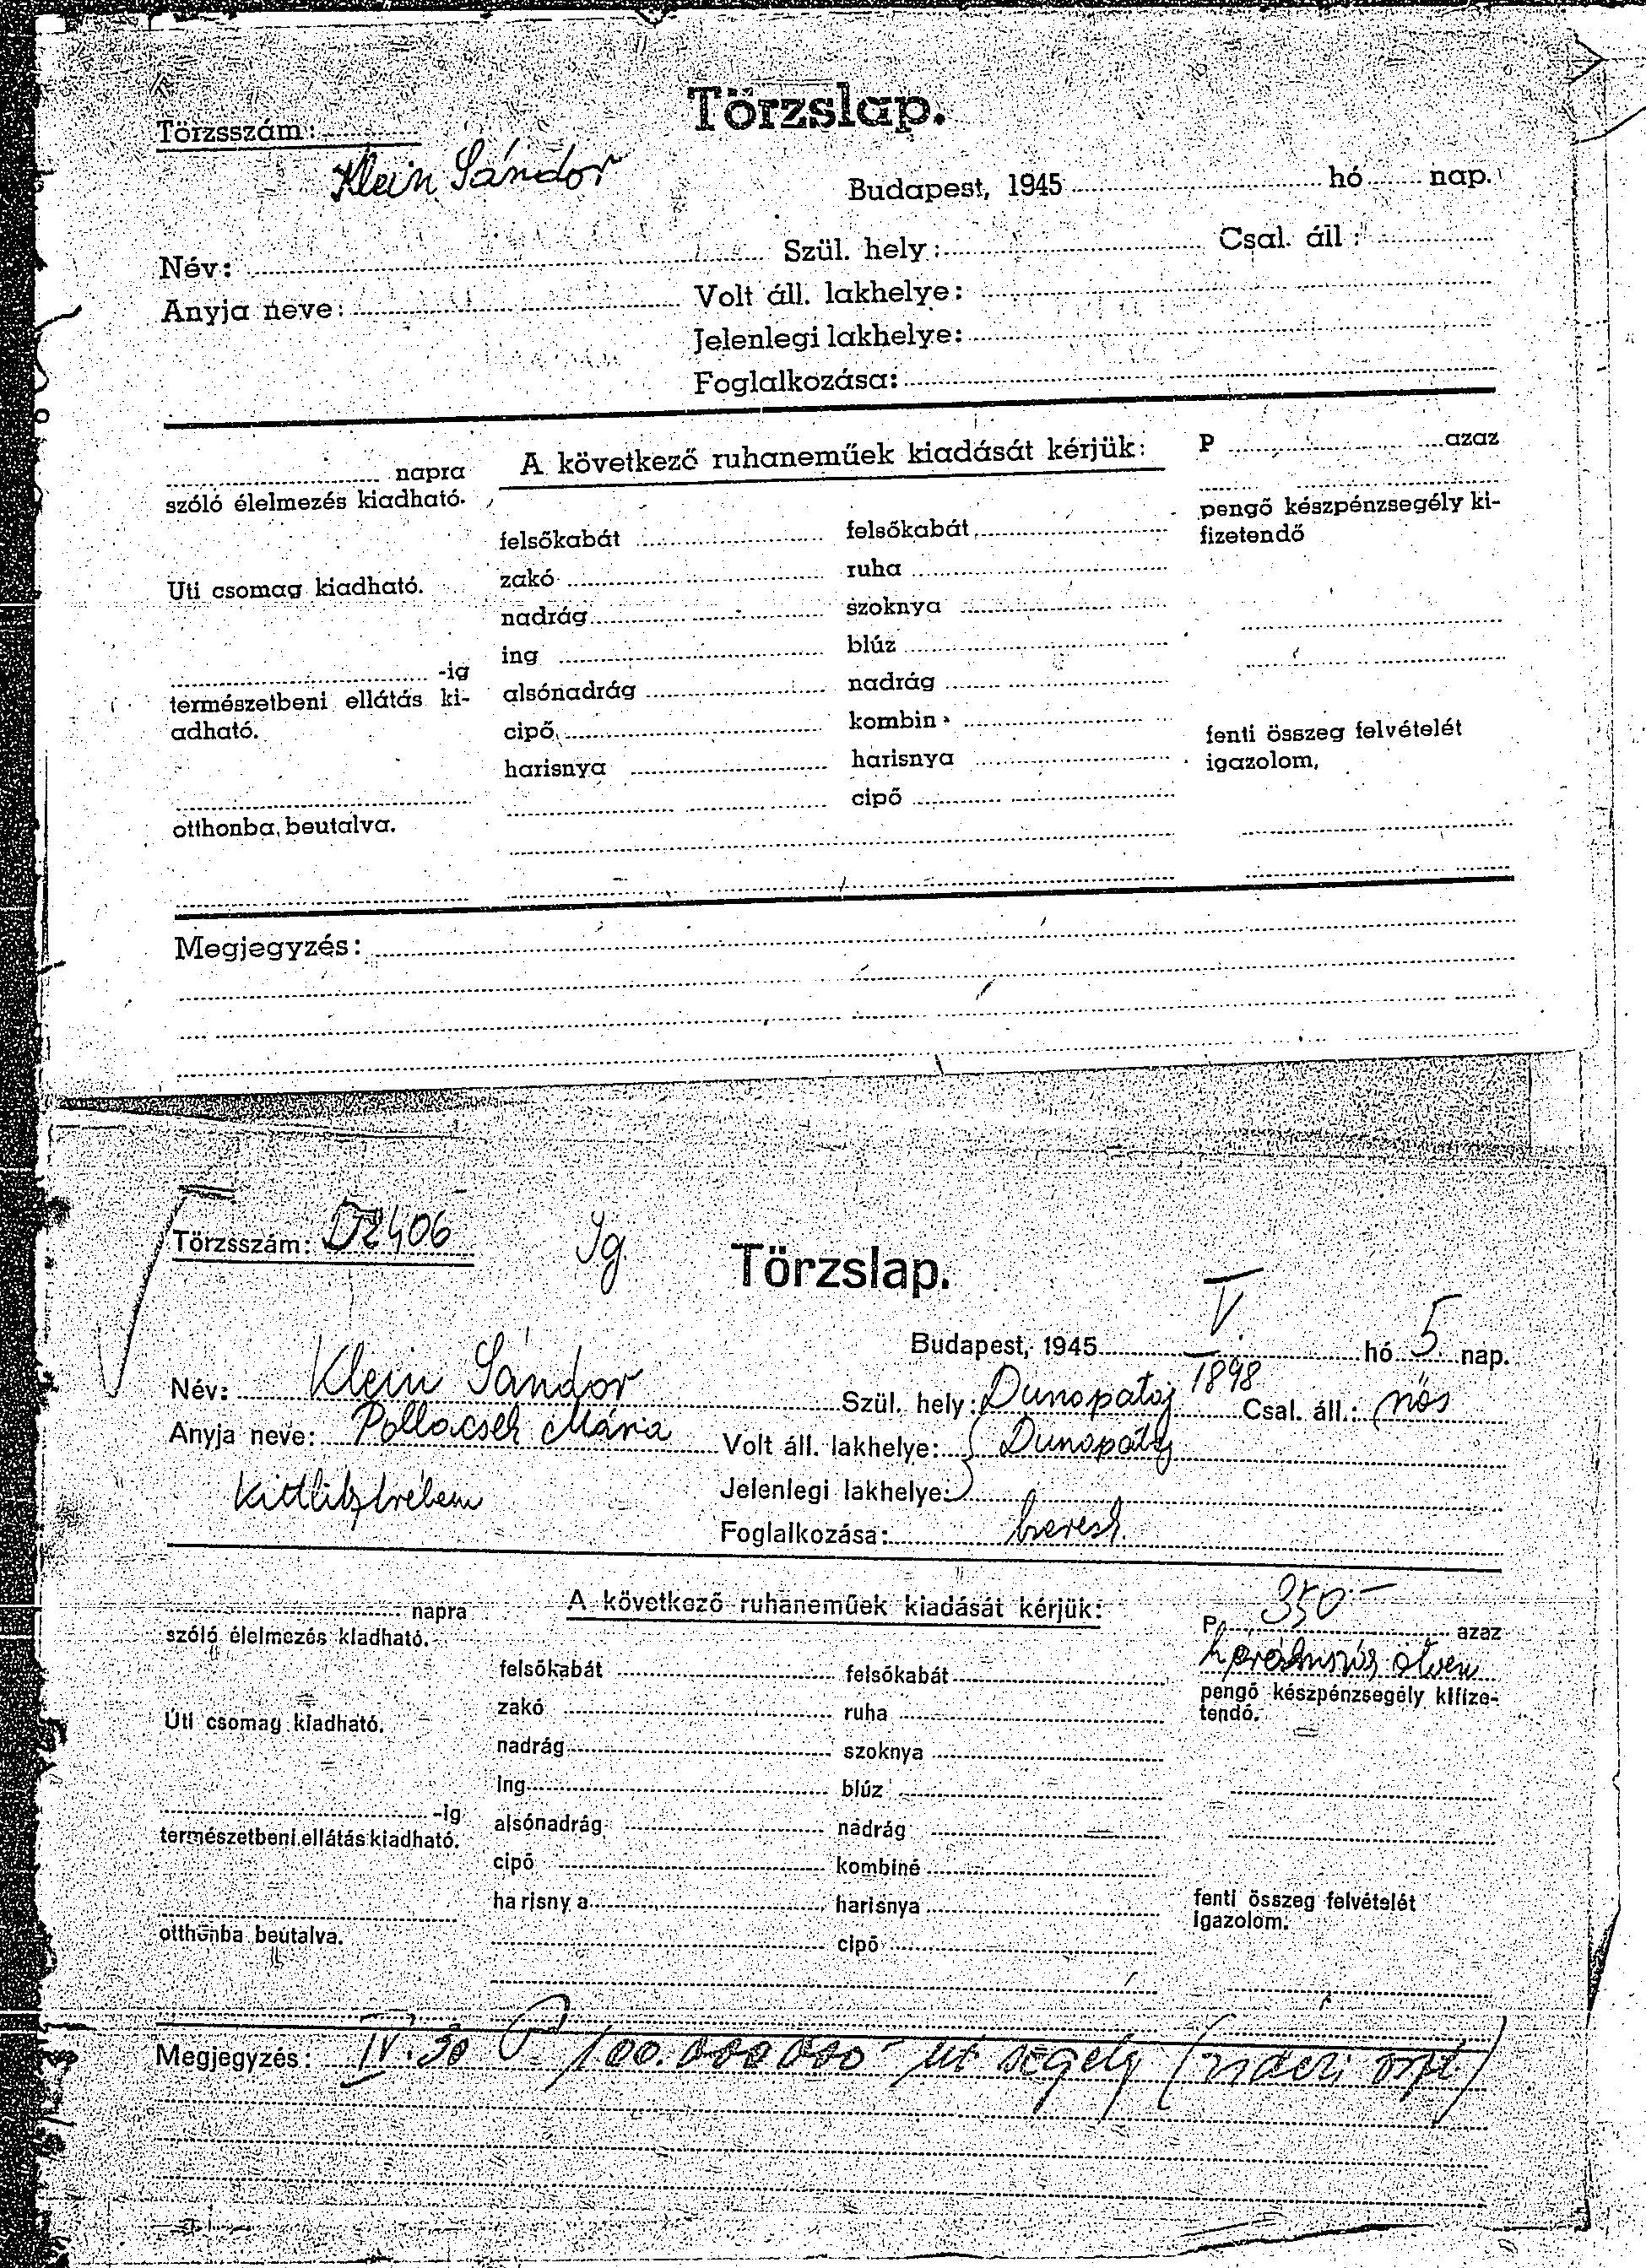 Törzslap.
Törzsszám:
Klein Sándor
Budapest, 1945 hó nap.
Név: Szül. hely: Csal. áll:
Anyja neve: Volt áll. lakhelye:
Jelenlegi lakhelye:
Foglalkozása:
napra
szóló élelmezés kiadható.
Uti csomag kiadható.
-ig
természetbeni ellátás ki-
adható.
otthonba beutalva.
A következő ruhaneműek kiadását kérjük:
felsőkabát felsőkabát
zakó ruha
nadrág szoknya
ing blúz
alsónadrág nadrág
cipő kombin
harisnya harisnya
cipő
P azaz
pengő készpénzsegély ki-
fizetendő
fenti összeg felvételét
igazolom,
Megjegyzés:
Törzsszám: D2406
Ig
Törzslap.
Budapest, 1945 V. hó 5 nap.
Név: Klein Sándor Szül. hely: Dunapataj 1898 Csal. áll.: nős
Anyja neve: Pollacsek Mária Volt áll. lakhelye: Dunapataj
Jelenlegi lakhelye:
Foglalkozása: keresk.
napra
szóló élelmezés kiadható.
Úti csomag kiadható.
-ig
természetbeni ellátás kiadható.
otthonba beutalva.
A következő ruhaneműek kiadását kérjük:
felsőkabát felsőkabát
zakó ruha
nadrág szoknya
ing blúz
alsónadrág nadrág
cipő kombiné
harisnya harisnya
cipő
P 350.- azaz
háromszáz ötven
pengő készpénzsegély kifize-
tendő.
fenti összeg felvételét
igazolom.
Megjegyzés: IV. 30 P. 100.000000 út segély